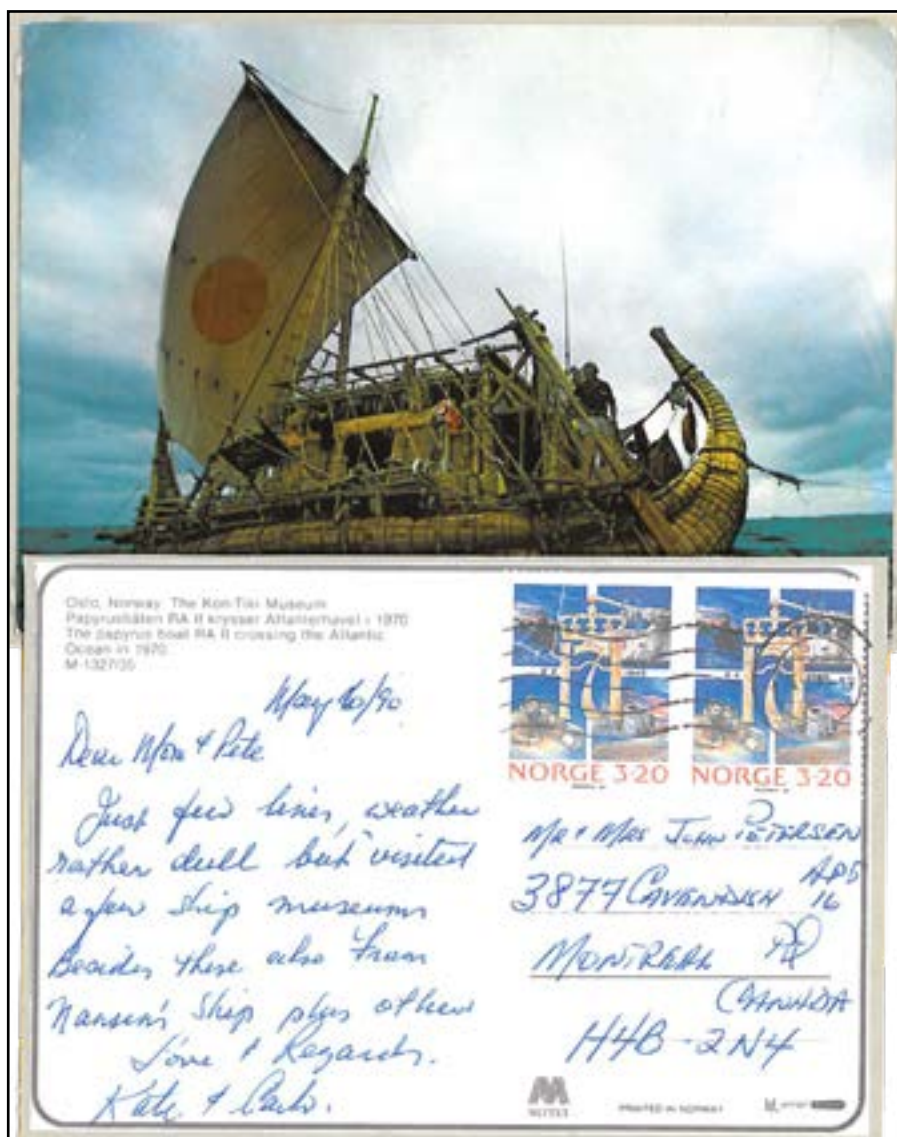 Oslo, Norway. The Kon-Tiki Museum
Papyrusbåten RA II krysser Atlanterhavet i 1970
The papyrus boat RA II crossing the Atlantic
Ocean in 1970.
M-1327/35
May /90
Dear Mom & Pete
Just few lines, weather
rather dull but visited
a few ship museums
Besides these also Fram
Nansen's ship plus others
Love & Regards.
Kate &
NORGE 3·20
NORGE 3·20
Mr & Mrs John Petersen
3877 Cavendish
16
Montreal PQ
Canada
H4B-2N4
PRINTED IN NORWAY